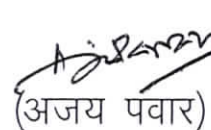 (अजय पवार)